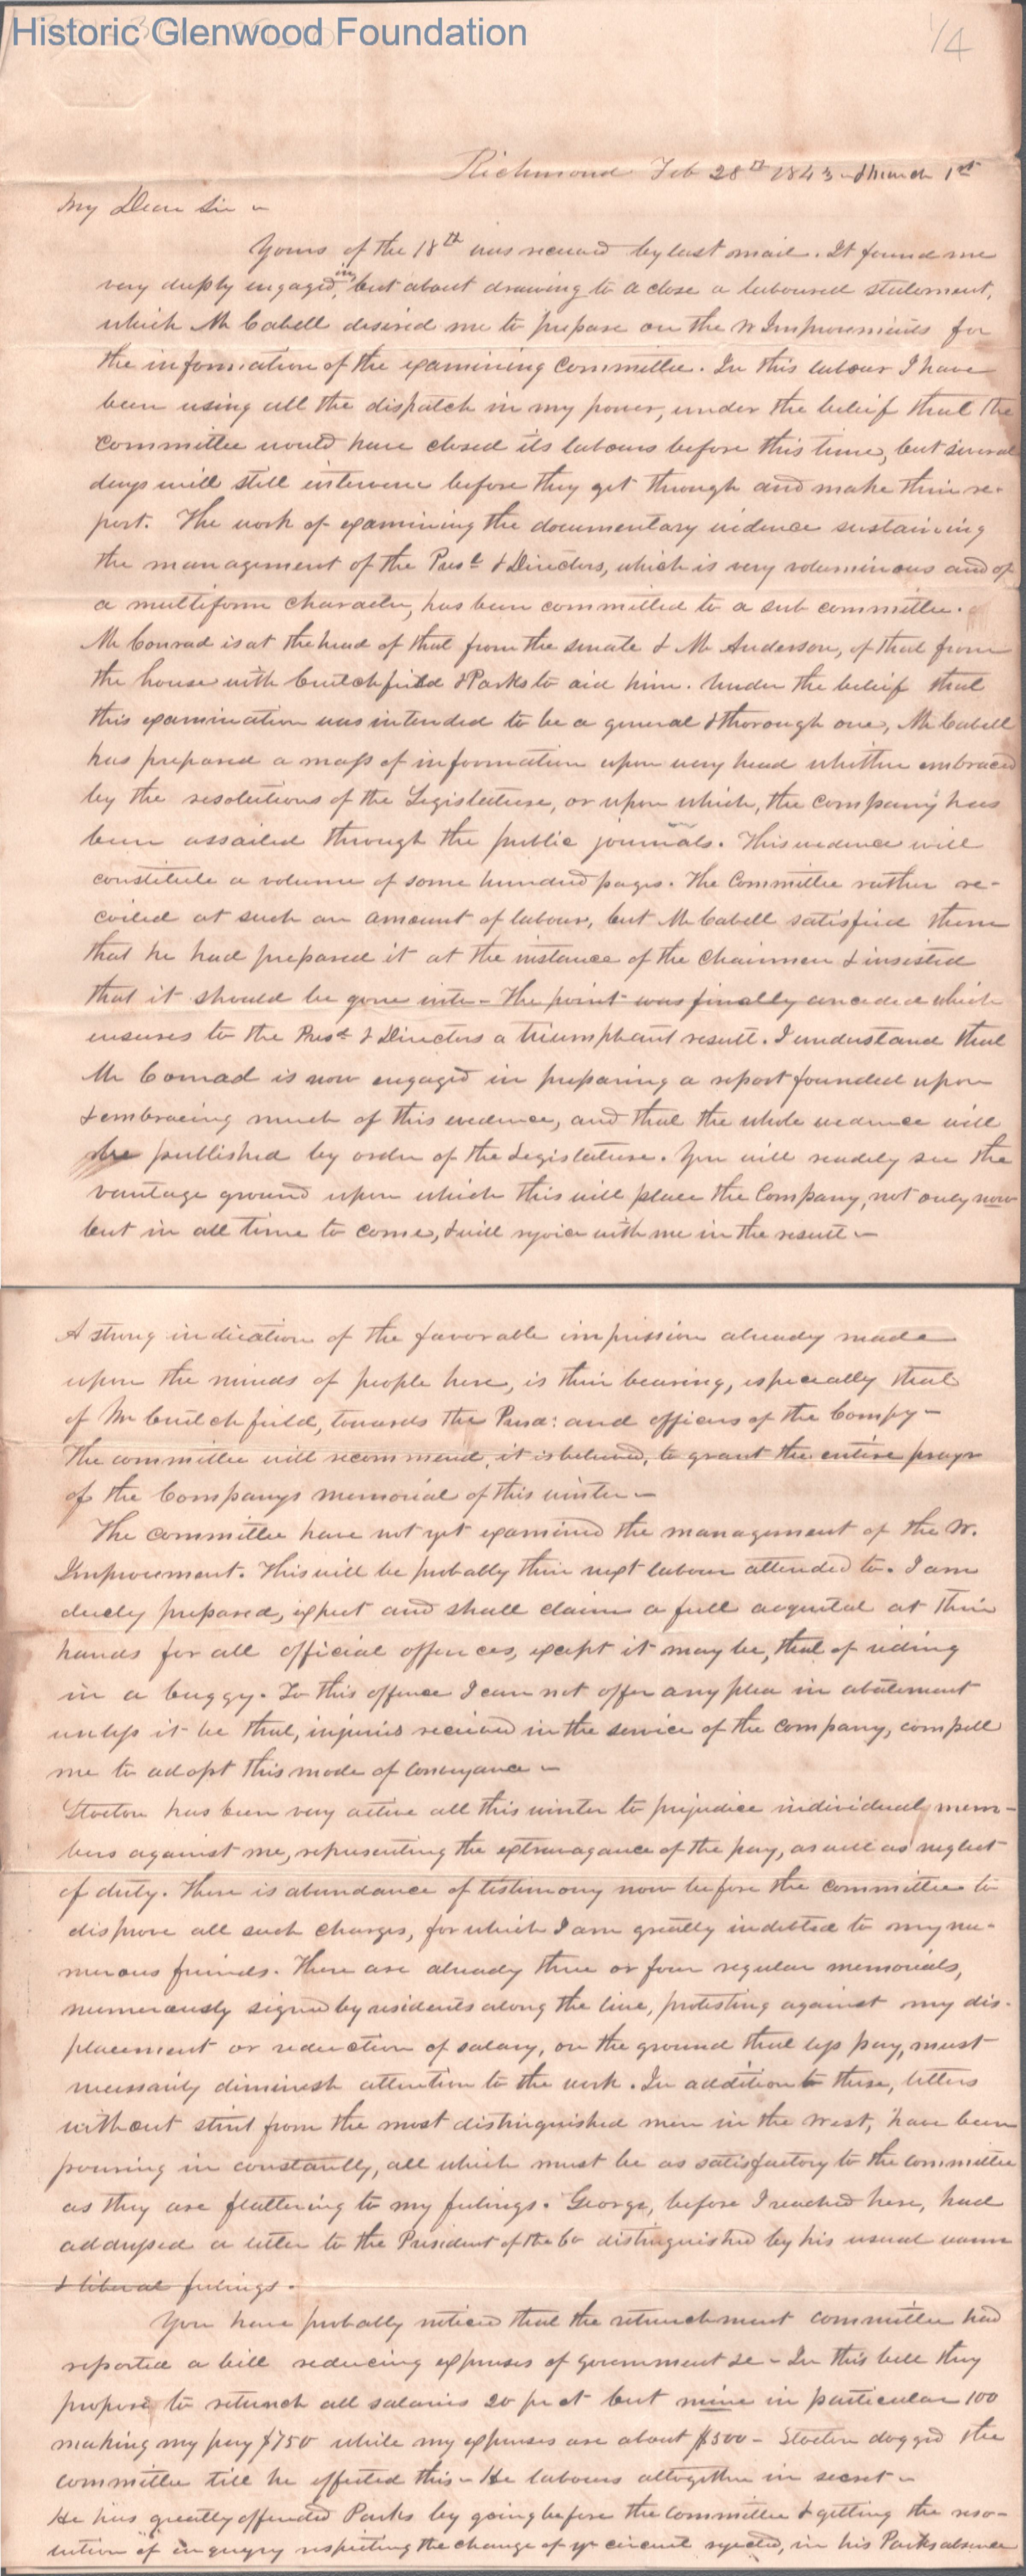 Historic Glenwood Foundation
1/4
Richmond Feb 28th 1843 & March 1st
My Dear Sir ~
Yours of the 18th was received by last mail. It found me
very deeply engaged in, but about drawing to a close a laboured statement,
which Mr Cabell desired me to prepare on the W Improvements for
the information of the examining Committee. In this labour I have
been using all the dispatch in my power, under the belief that the
Committee would have closed its labours before this time, but several
days will still intervene before they get through and make their re-
port. The work of examining the documentary evidence sustaining
the management of the Prest & Directors, which is very voluminous and of
a multiform character, has been committed to a sub committee.
Mr Conrad is at the head of that from the senate & Mr Anderson, of that from
the house with Crutchfield & Parks to aid him. Under the belief that
this examination was intended to be a general & thorough one, Mr Cabell
has prepared a mass of information upon every head whether embraced
by the resolutions of the Legislature, or upon which, the company has
been assailed through the public journals. This evidence will
constitute a volume of some hundred pages. The Committee rather re-
coiled at such an amount of labour, but Mr Cabell satisfied them
that he had prepared it at the instance of the Chairmen & insisted
that it should be gone into - The point was finally conceded which
ensures to the Prest & Directors a triumphant result. I understand that
Mr Conrad is now engaged in preparing a report founded upon
& embracing much of this evidence, and that the whole evidence will
be published by order of the Legislature. You will readily see the
vantage ground upon which this will place the Company, not only now
but in all time to come, & will rejoice with me in the result ~
A strong indication of the favorable impression already made
upon the minds of people here, is their bearing, especially that
of Mr Crutchfield, towards the Presd: and officers of the Compy -
The committee will recommend, it is believed, to grant the entire prayr
of the Companys memorial of this winter ~
The Committee have not yet examined the management of the W.
Improvement. This will be probably their next labour attended to. I am
duely prepared, expect and shall claim a full acquital at their
hands for all official offences, except it may be, that of riding
in a buggy. To this offence I can not offer any plea in abatement
unless it be that, injuries received in the service of the company, compell
me to adopt this mode of conveyance ~
Stocton has been very active all this winter to prejudice individual mem-
bers against me, representing the extravagance of the pay, as well as neglect
of duty. There is abundance of testimony now before the committee to
disprove all such charges, for which I am greatly indebted to my nu-
merous friends. There are already three or four regular memorials,
numerously signed by residents along the line, protesting against my dis-
placement or reduction of salary, on the ground that less pay, must
necessarily diminish attention to the work. In addition to these, letters
without stint from the most distinguished men in the West, have been
pouring in constantly, all which must be as satisfactory to the committee
as they are flattering to my feelings. George, before I reached here, had
addressed a letter to the President of the Co distinguished by his usual warm
& liberal feelings.
You have probably noticed that the retrenchment committee had
reported a bill reducing expenses of government &c - In this bill they
propose to retrench all salaries 20 pr ct but mine in particular 100
making my pay $750 while my expenses are about $500 - Stocton dogged the
committee till he effected this - He labours altogether in secret ~
He has greatly offended Parks by going before the Committee & getting the reso-
lution of inquiry respecting the change of yr circuit rejected, in his Parks absence